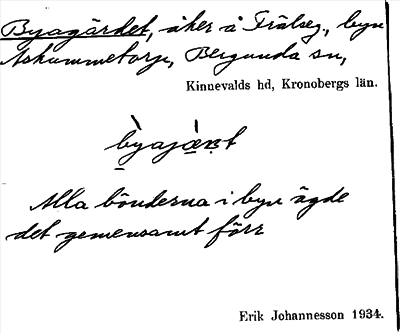 Byagärdet, åker å Frälseg., byn
Askummetorp, Bergunda sn,
Kinnevalds hd, Kronobergs län.
bỳ̠ajä̠̀ṇt
Alla bönderna i byn ägde
det gemensamt förr
Erik Johannesson 1934.